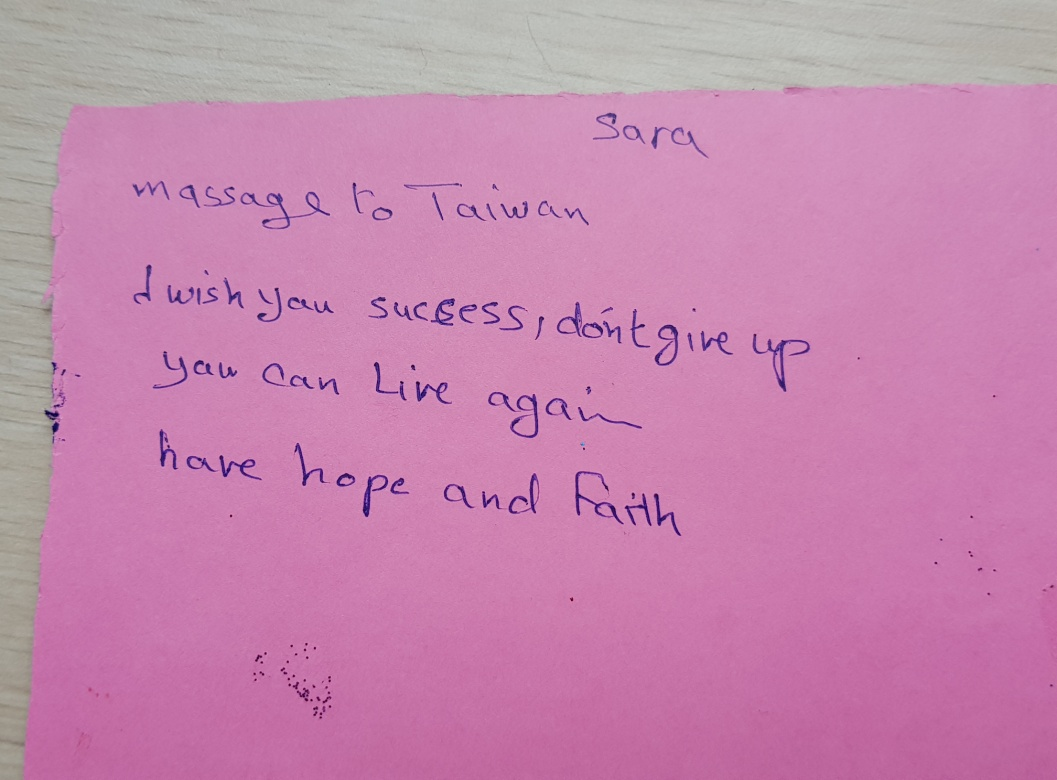 Sara
massage to Taiwan
I wish yau success, don't give up
yau can Live again
have hope and Faith